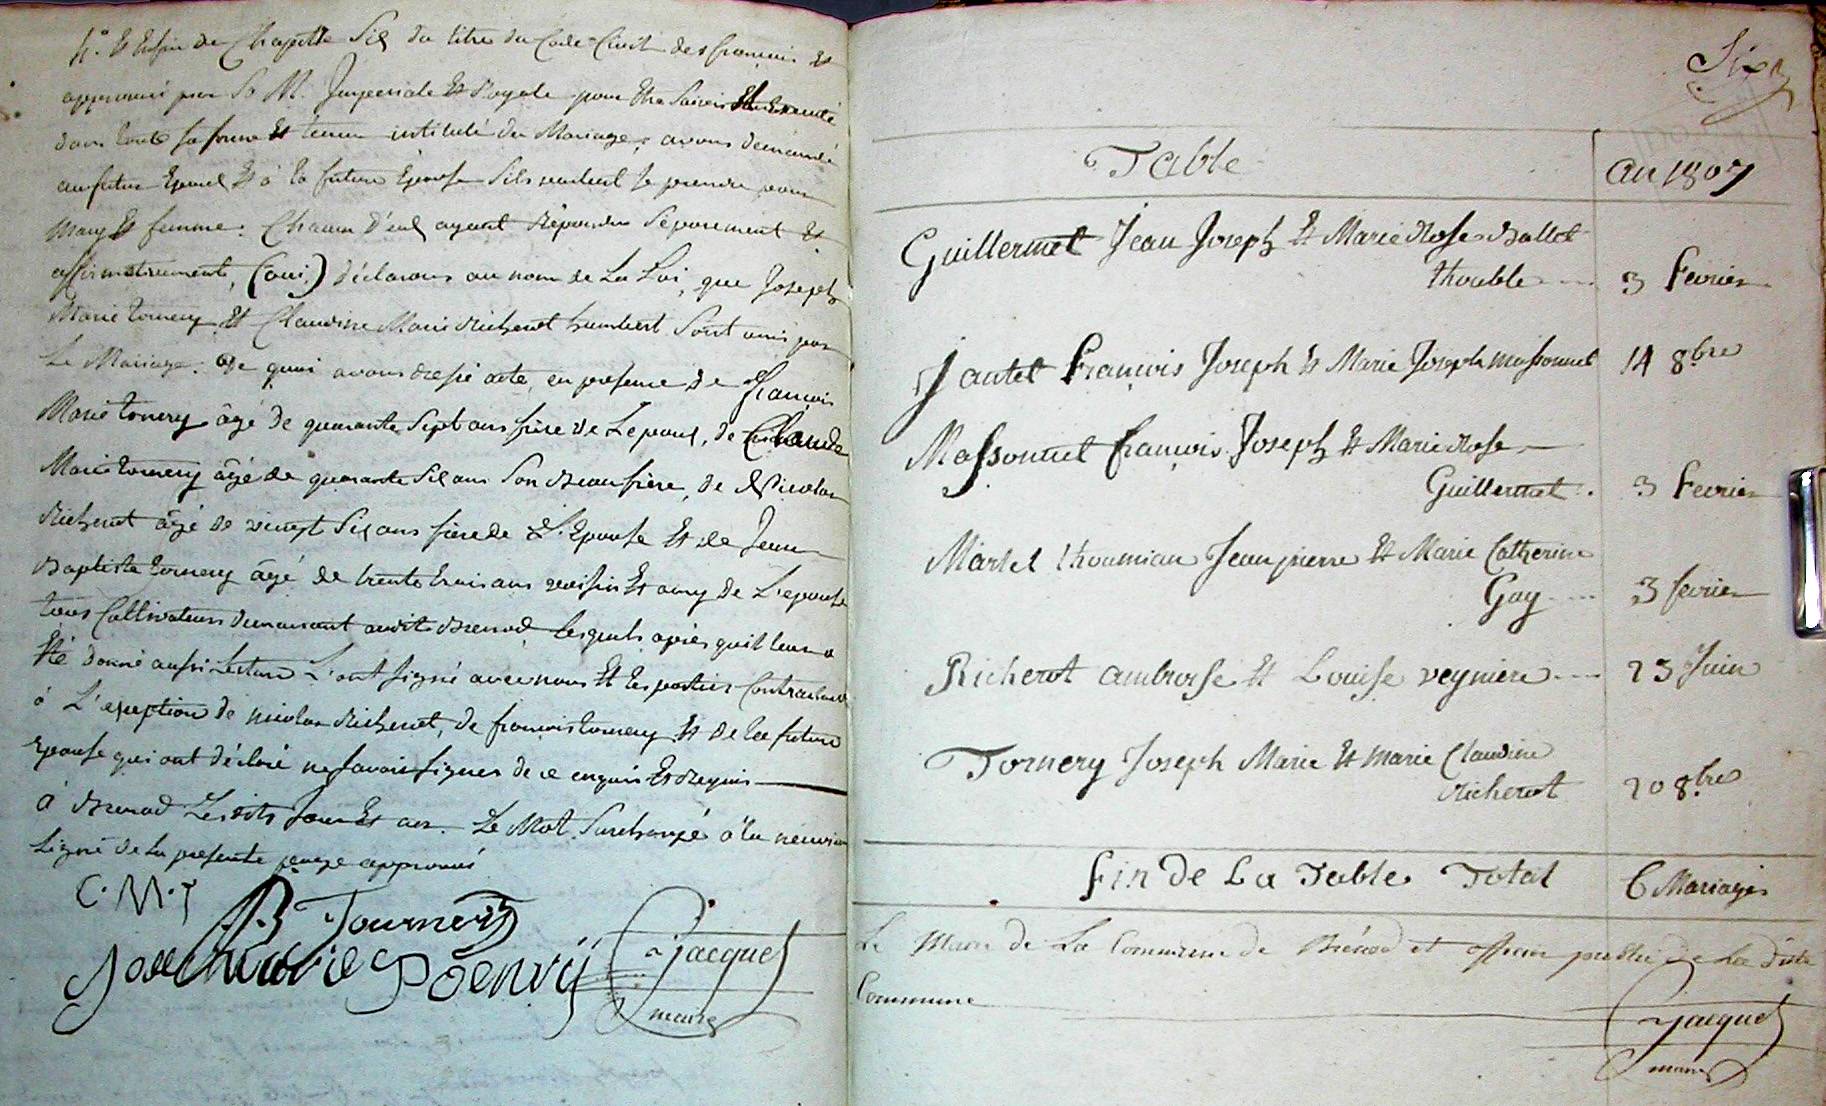 4.° Et Enfin du Chapitre Six du titre du Code-Civil des français Et
approuvé par Sa M. Imperiale Et Royale pour Etre Suivis Et Executé
dans toute sa forme Et teneur intitulé du Mariage, avons demandé
au futur Epoux Et à la future Epouse Sils veulent se prendre pour
Mary Et femme. Chacun d'eux ayant Répondu Séparement Et
affirmativement, (oui) Déclarons au nom de La Loi, que Joseph
Marie tornery Et Claudine Marie Richerot humbert Sont unis par
Le Mariage. De quoi avons dressé acte, en presence de François
Marie tornery âgé de quarante Sept ans frère de L'epoux, de Claude
Marie tornery âgé de quarante Six ans Son Beaufrère, de Nicolas
Richerot âgé de vingt Six ans frère de L'Epouse Et de Jean
Baptiste tornery âgé de trente trois ans voisin Et amy de L'epouse
tous Cultivateurs demeurant audit Brenod Lesquels après quil leur a
Eté donné aussi Lecture L'ont signé avec nous Et les parties Contractantes
à L'exeption de nicolas Richerot, de françois tornery Et de la future
Epouse qui ont déclaré ne savoir signer de ce enquis Et Requis
à Brenod Les dits Jour Et an. Le Mot Surchargé à la neuvieme
Ligne de la presente page approuvé
C. M. T
J B Tournery
Jacquet
maire
Six
Table
an 1807
Guillermet Jean Joseph Et Marie Rose Ballet
thouble 3 Fevrier
Jantet François Joseph Et Marie Joseph Massonnet 14 8bre
Massonnet françois Joseph Et Marie Rose
Guillermet. 3 Fevrier
Martel thoumian Jean pierre Et Marie Catherine
Gay 3 fevrier
Richerot ambroise Et Louise veyniere 23 Juin
Tornery Joseph Marie Et marie Claudine
Richerot 20 8bre
fin de La Table Total 6 Mariages
Le Maire de La Commune de Brénod et officier public de La dite
Commune
Jacquet
maire